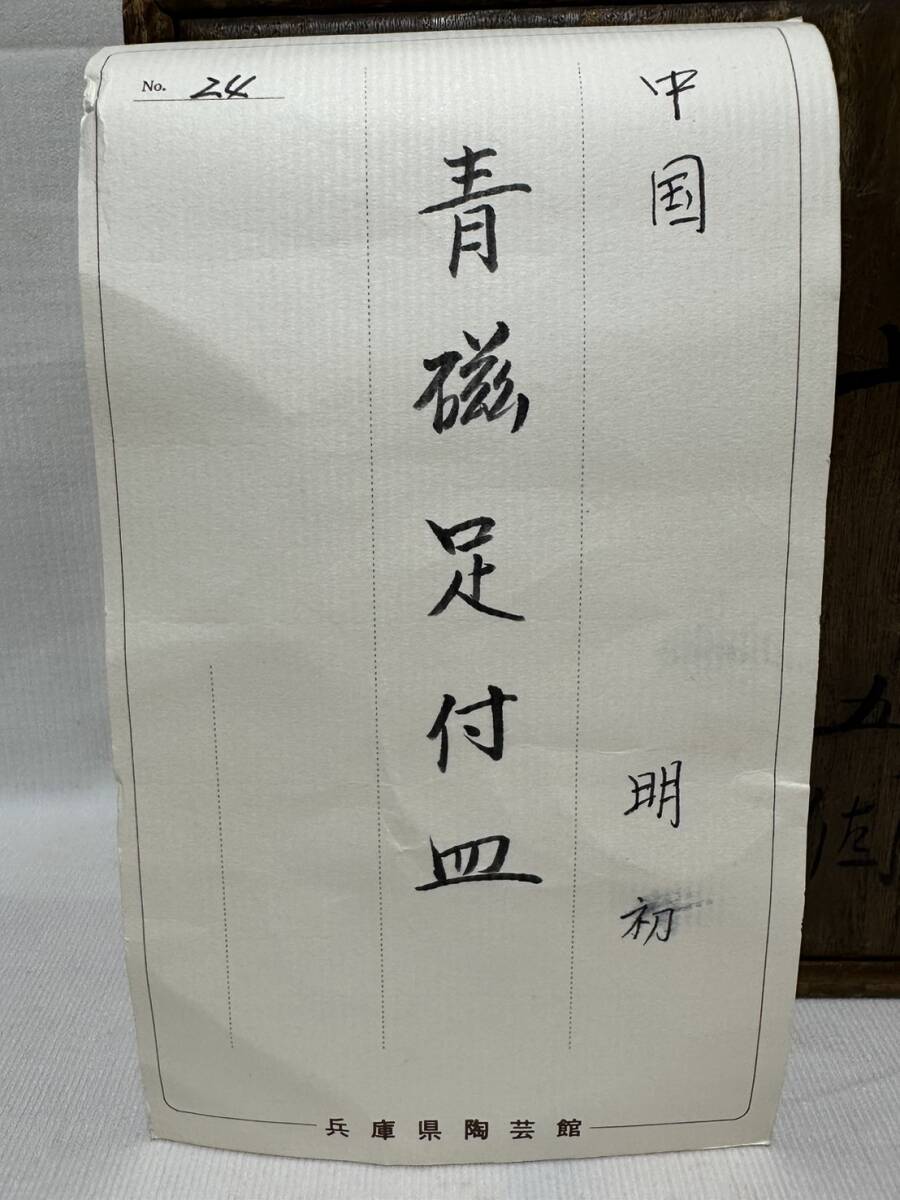 No. 24
中国 明初
青磁足付皿
兵庫県陶芸館
五
佐